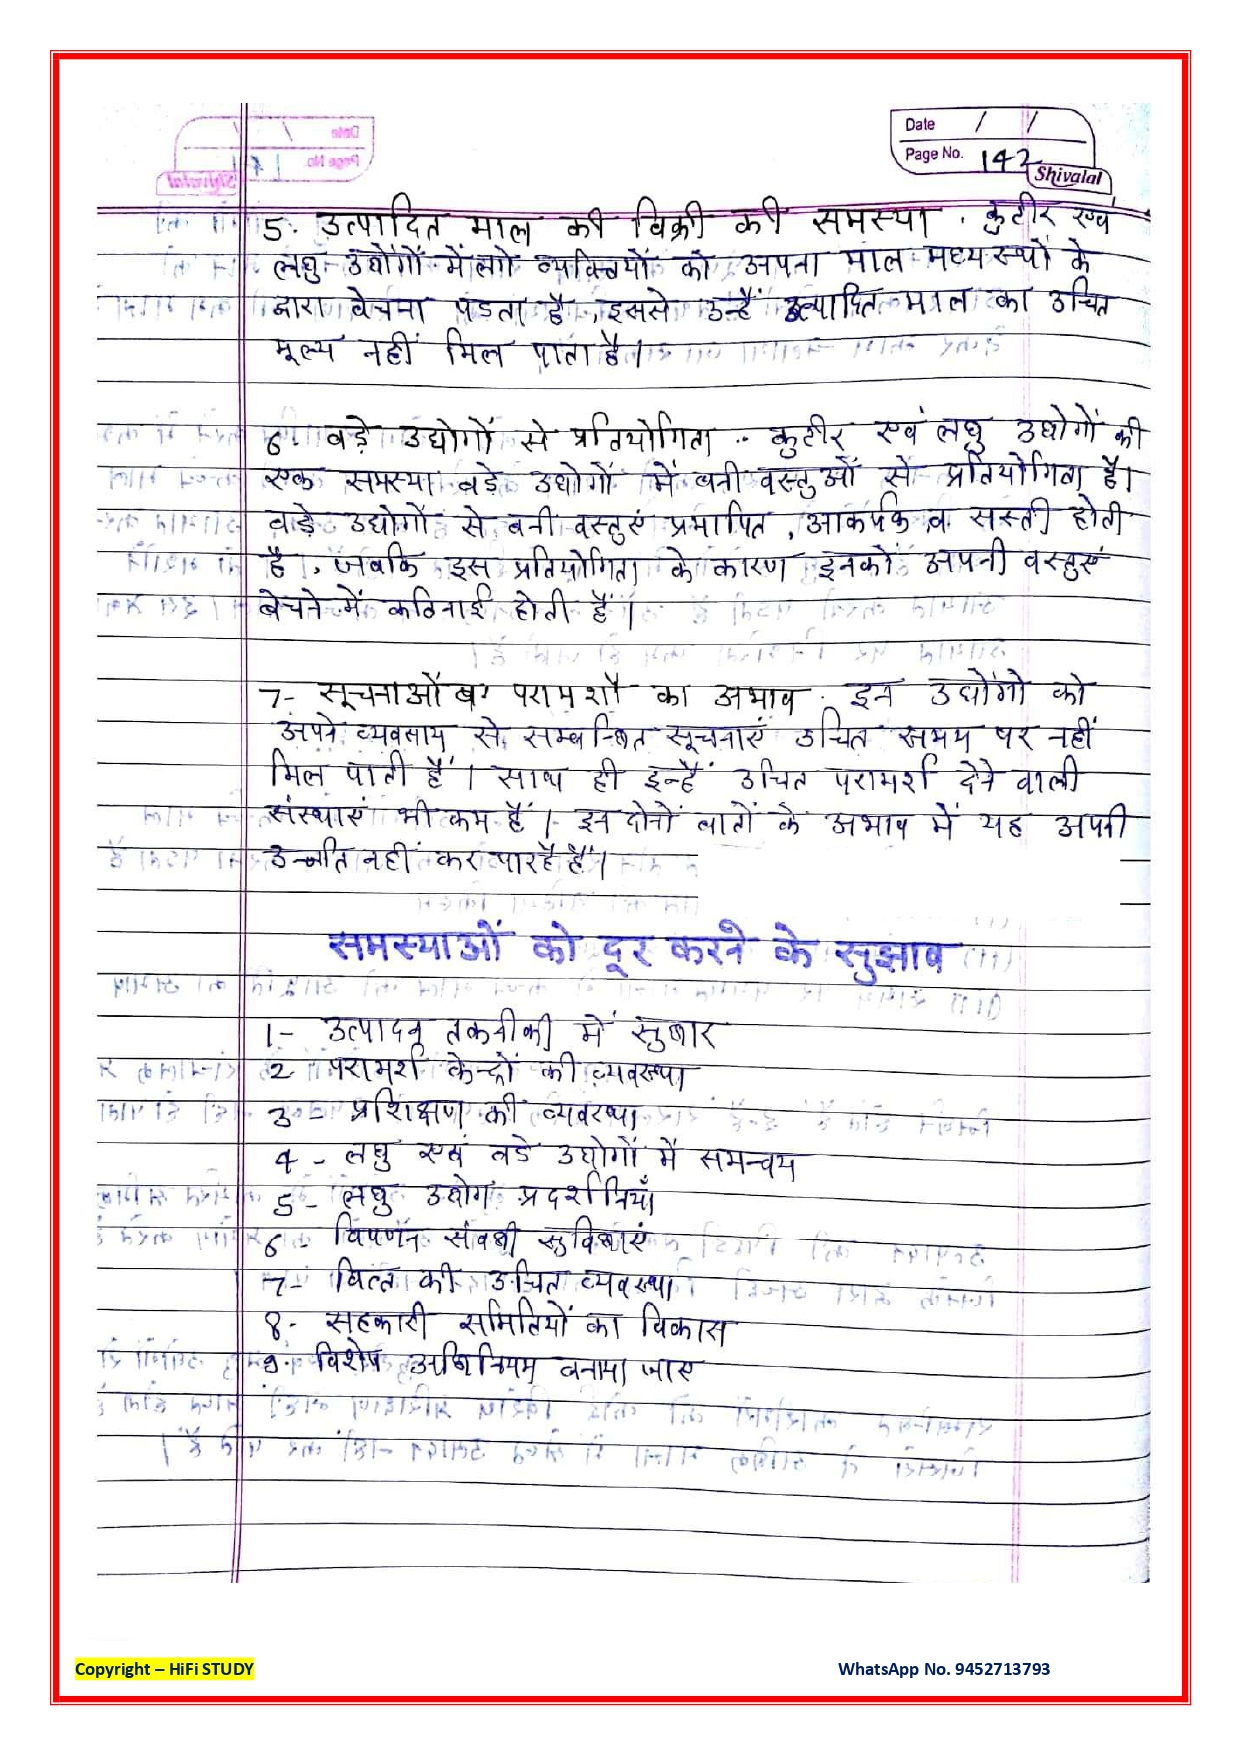 Date / /
Page No. 142
Shivalal
5. उत्पादित माल की विक्री की समस्या . कुटीर एवं
लघु उद्योगों में लगे व्यक्तियों को अपना माल मध्यस्थों के
द्वारा बेचना पडता है, इससे उन्हैं उत्पादित माल का उचित
मूल्य नहीं मिल पाता है।
6- वड़े उद्योगों से प्रतियोगिता -- कुटीर एवं लघु उद्योगों की
एक समस्या वड़े उद्योगों में बनी वस्तुओं से प्रतियोगिता है।
वड़े उद्योगों से बनी वस्तुएं प्रमापित, आकर्षक व सस्ती होती
है, जबकि इस प्रतियोगिता के कारण इनको अपनी वस्तुएं
बेचने में कठिनाई होती हैं।
7- सूचनाओं व परामर्शो का अभाव . इन उद्योगो को
अपने व्यवसाय से सम्बन्धित सूचनाएं उचित समय पर नहीं
मिल पाती हैं। साथ ही इन्हैं उचित परामर्श देने वाली
संस्थाएं भी कम हैं। इन दोनों वातों के अभाव में यह अपनी
उन्नति नहीं कर पा रहै हैं।
समस्याओं को दूर करने के सुझाव
1- उत्पादन तकनीकी में सुधार
2- परामर्श केन्द्रों की व्यवस्था
3- प्रशिक्षण की व्यवस्था
4- लघु एवं वडे उद्योगों में समन्वय
5- लघु उद्योग प्रदर्शनियाँ
6- विपणन संवधी सुविधाएं
7- वित्त की उचित व्यवस्था
8- सहकारी समितियों का विकास
9- विशेष अधिनियम वनाया जाए
Copyright – HiFi STUDY
WhatsApp No. 9452713793